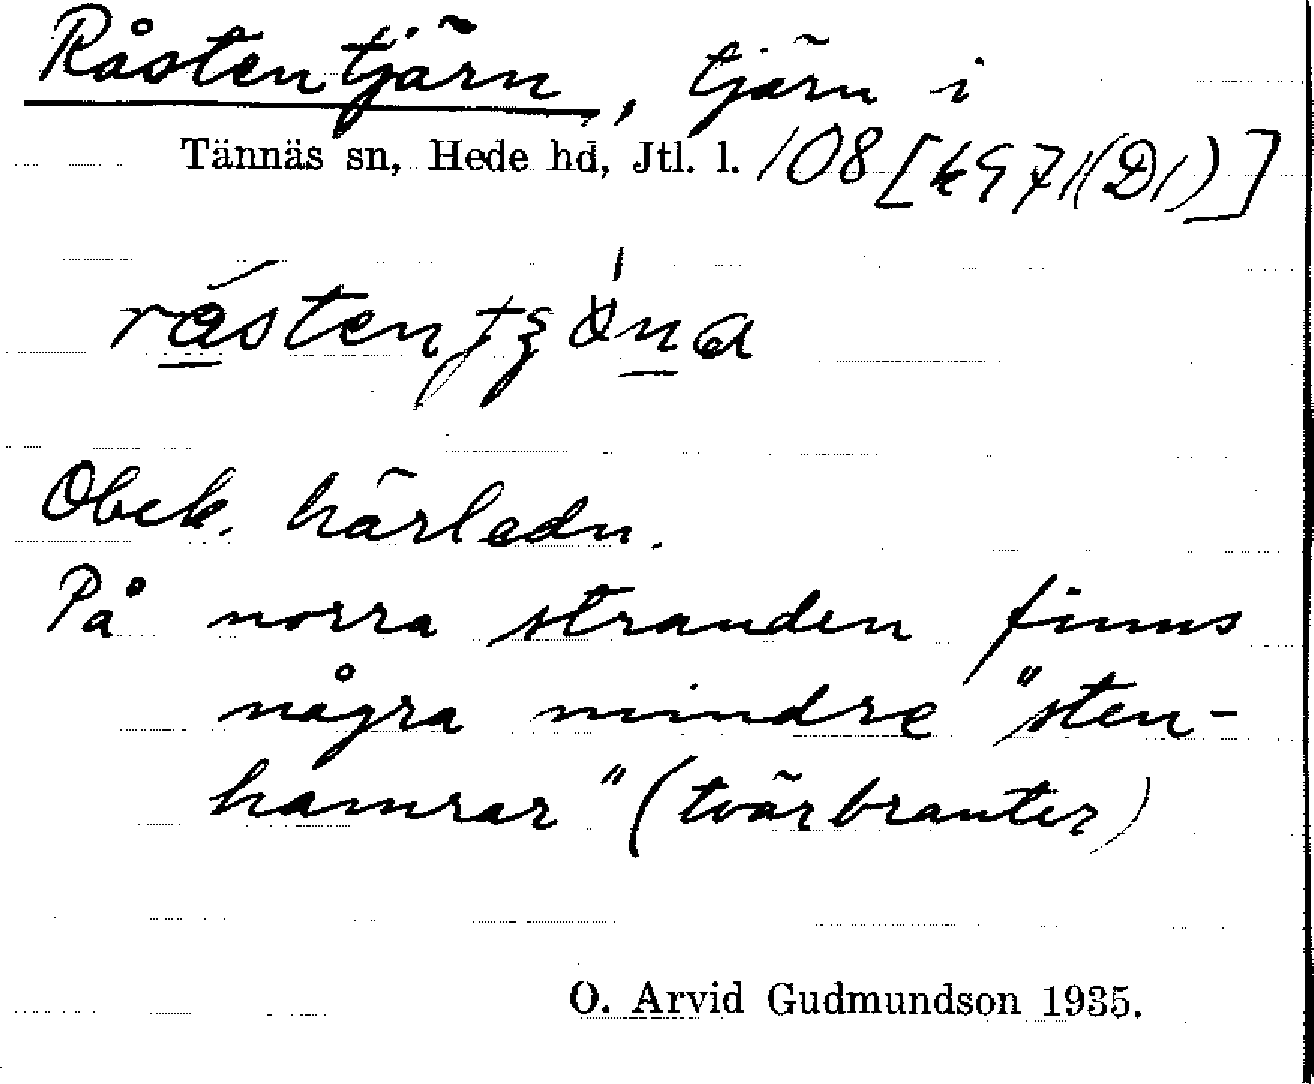 Råstentjärn, tjärn i
Tännäs sn, Hede hd, Jtl. l. 108 [k971(D1)]
råstentʒöna
Obek. härledn.
På norra stranden finns
några mindre "sten-
hamrar" (tvärbranter)
O. Arvid Gudmundson 1935.